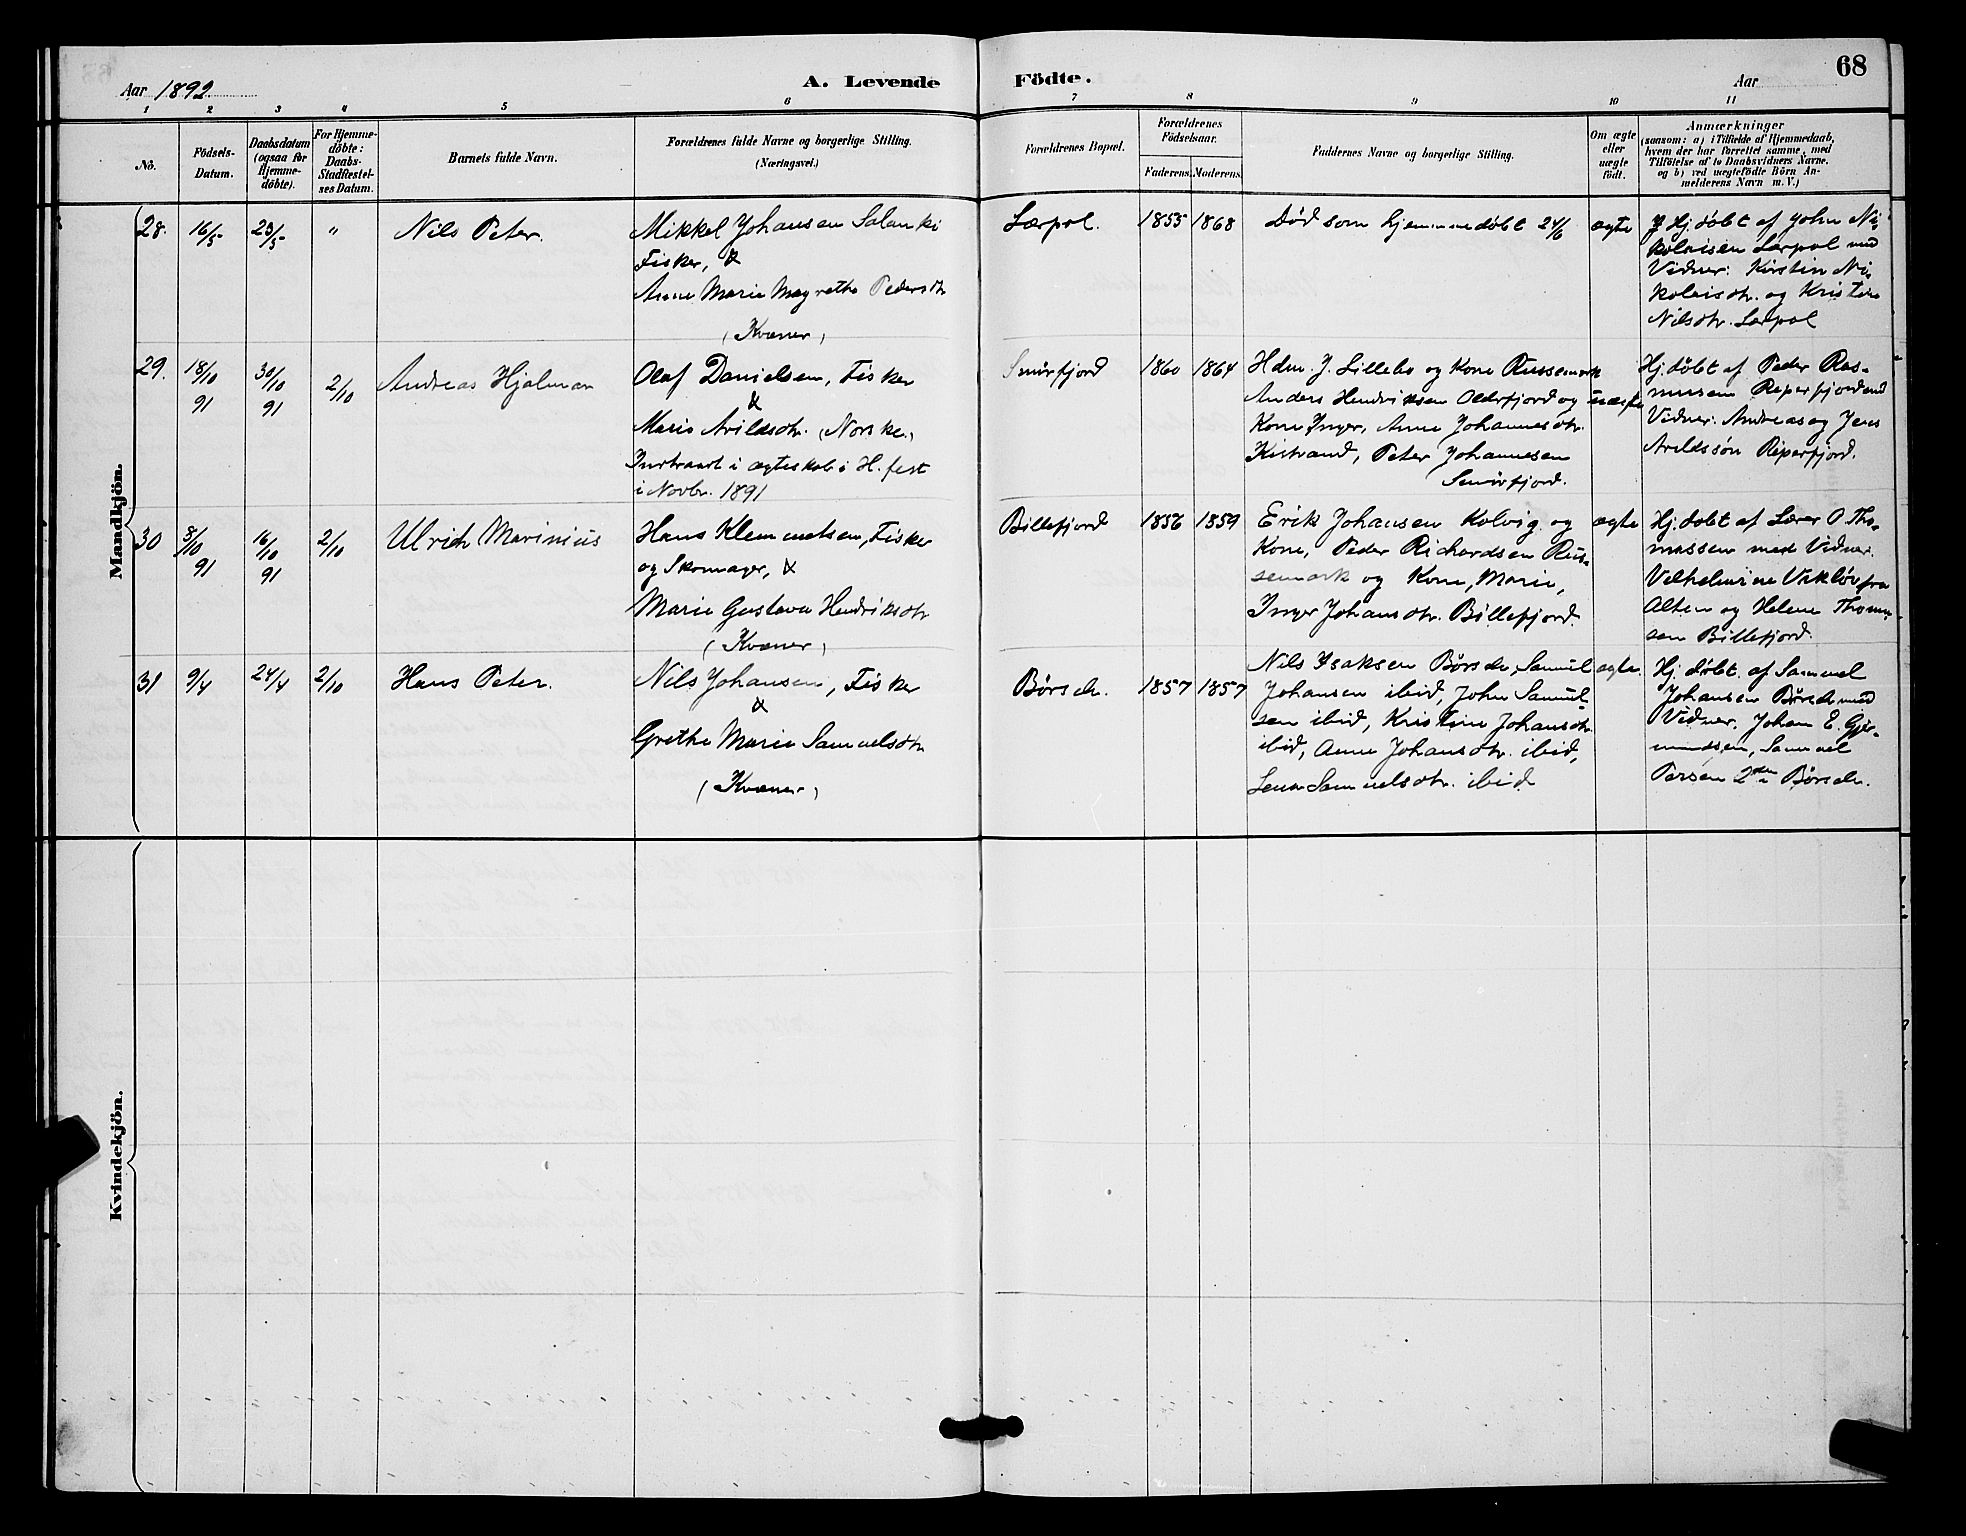 68
Aar 1892
A. Levende
Födte.
Aar
1 2 3 4 5 6 7 8 9 10 11
No.
Födsels-
Datum.
Daabsdatum
(ogsaa for
Hjemme-
döbte).
For Hjemme-
döbte:
Daabs-
Stadfestel-
ses Datum.
Barnets fulde Navn.
Forældrenes fulde Navne og borgerlige Stilling.
(Næringsvei.)
Forældrenes Bopæl.
Forældrenes
Födselsaar.
Faderens. Moderens.
Faddernes Navne og borgerlige Stilling.
Om ægte
eller
uægte
födt.
Anmærkninger
(saasom: a) i Tilfælde af Hjemmedaab,
hvem der har forrettet samme, med
Tilföielse af to Daabsvidners Navne.
og b) ved uægtefödte Börn An-
melderens Navn m. V.)
Mandkjön.
28. 16/5 23/5 "
Nils Peter.
Mikkel Johansen Salanki
Fisker, &
Anne Marie Magrethe Pedersdtr
(Kvæner)
Lærpol.
1855 1868
Død som hjemmedøbt 24/6
ægte
Hj. døbt af John Ni-
kolaisen Lærpol med
Vidner: Kirstin Ni-
kolaisdtr. og Kristine
Nilsdtr. Lærpol
29. 18/10 91 30/10 91 2/10
Andreas Hjalmar
Olaf Danielsen, Fisker
&
Marie Arildsdtr. (Norske.)
Indtraadt i ægteskab i H. fest
i Novbr. 1891
Smörfjord
1860 1864
Hdm. J. Lillebo og Kone Russemark
Anders Hendriksen Olderfjord og
Kone Inger, Anne Johannesdtr.
Kistrand, Peter Johannesen
Smörfjord.
uægte
Hj. døbt af Peder Ras-
musen Reperfjord med
Vidner: Andreas og Jens
Arildssön Reperfjord.
30 3/10 91 16/10 91 2/10
Ulrich Marinius
Hans Klemmetsen, Fisker
og Skomager, &
Marie Gustava Hendriksdtr
(Kvæner)
Billefjord
1856 1859
Erik Johansen Kolvig og
Kone, Peder Richardsen Rus-
semark og Kone, Marie,
Inger Johansdtr. Billefjord.
ægte
Hj. døbt af Lærer O. Tho-
massen med Vidner.
Vilhelmine Vikløv fra
Alten og Helene Thomas-
sen Billefjord.
31 9/4 24/4 2/10
Hans Peter.
Nils Johansen, Fisker
&
Grethe Marie Samuelsdtr
(Kvæner)
Børselv.
1857 1857
Nils Isaksen Børselv, Samuel
Johansen ibid, John Samuel-
sen ibid, Kristine Johansdtr.
ibid, Anne Johansdtr. ibid,
Lena Samuelsdtr. ibid
ægte.
Hj. døbt af Samuel
Johansen Børselv med
Vidner. Johan E. Gjer-
mundsen, Samuel
Persen 2den Børselv.
Kvindekjön.